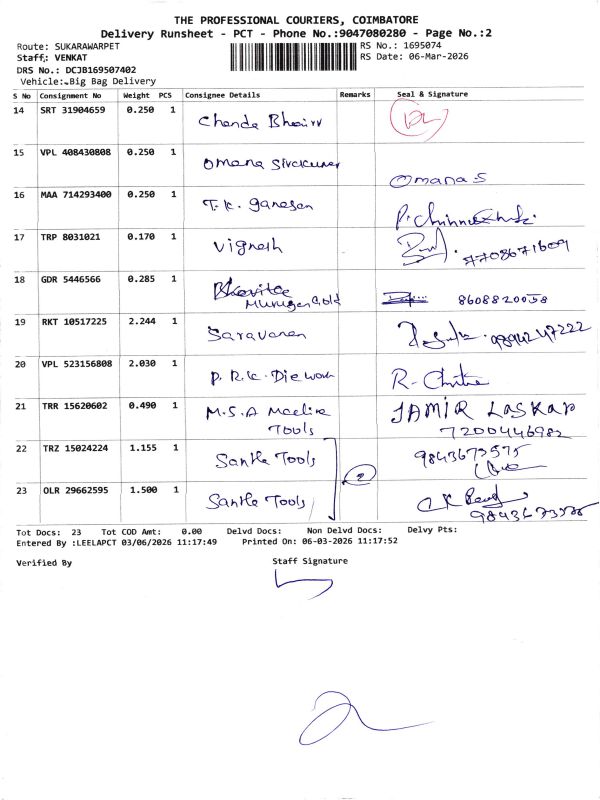 THE PROFESSIONAL COURIERS, COIMBATORE
Delivery Runsheet - PCT - Phone No.:9047080280 - Page No.:2
Route: SUKARAWARPET
RS No.: 1695074
Staff: VENKAT
RS Date: 06-Mar-2026
DRS No.: DCJB169507402
Vehicle: Big Bag Delivery
S No Consignment No Weight PCS Consignee Details Remarks Seal & Signature
14 SRT 31904659 0.250 1 Chanda
15 VPL 408430808 0.250 1 Omana Sivakumar Omana S
16 MAA 714293400 0.250 1 T.K. Ganesan
17 TRP 8031021 0.170 1 Vignesh 7708671609
18 GDR 5446566 0.285 1 Murugan Gold 8608820058
19 RKT 10517225 2.244 1 Saravanan 9894247222
20 VPL 523156808 2.030 1 P. R.K. Die work R-
21 TRR 15620602 0.490 1 M.S.A Tools JAMIR LASKAR
7200446982
22 TRZ 15024224 1.155 1 Tools 9843673575
23 OLR 29662595 1.500 1 Tools 2
Tot Docs: 23 Tot COD Amt: 0.00 Delvd Docs: Non Delvd Docs: Delvy Pts:
Entered By :LEELAPCT 03/06/2026 11:17:49 Printed On: 06-03-2026 11:17:52
Verified By Staff Signature